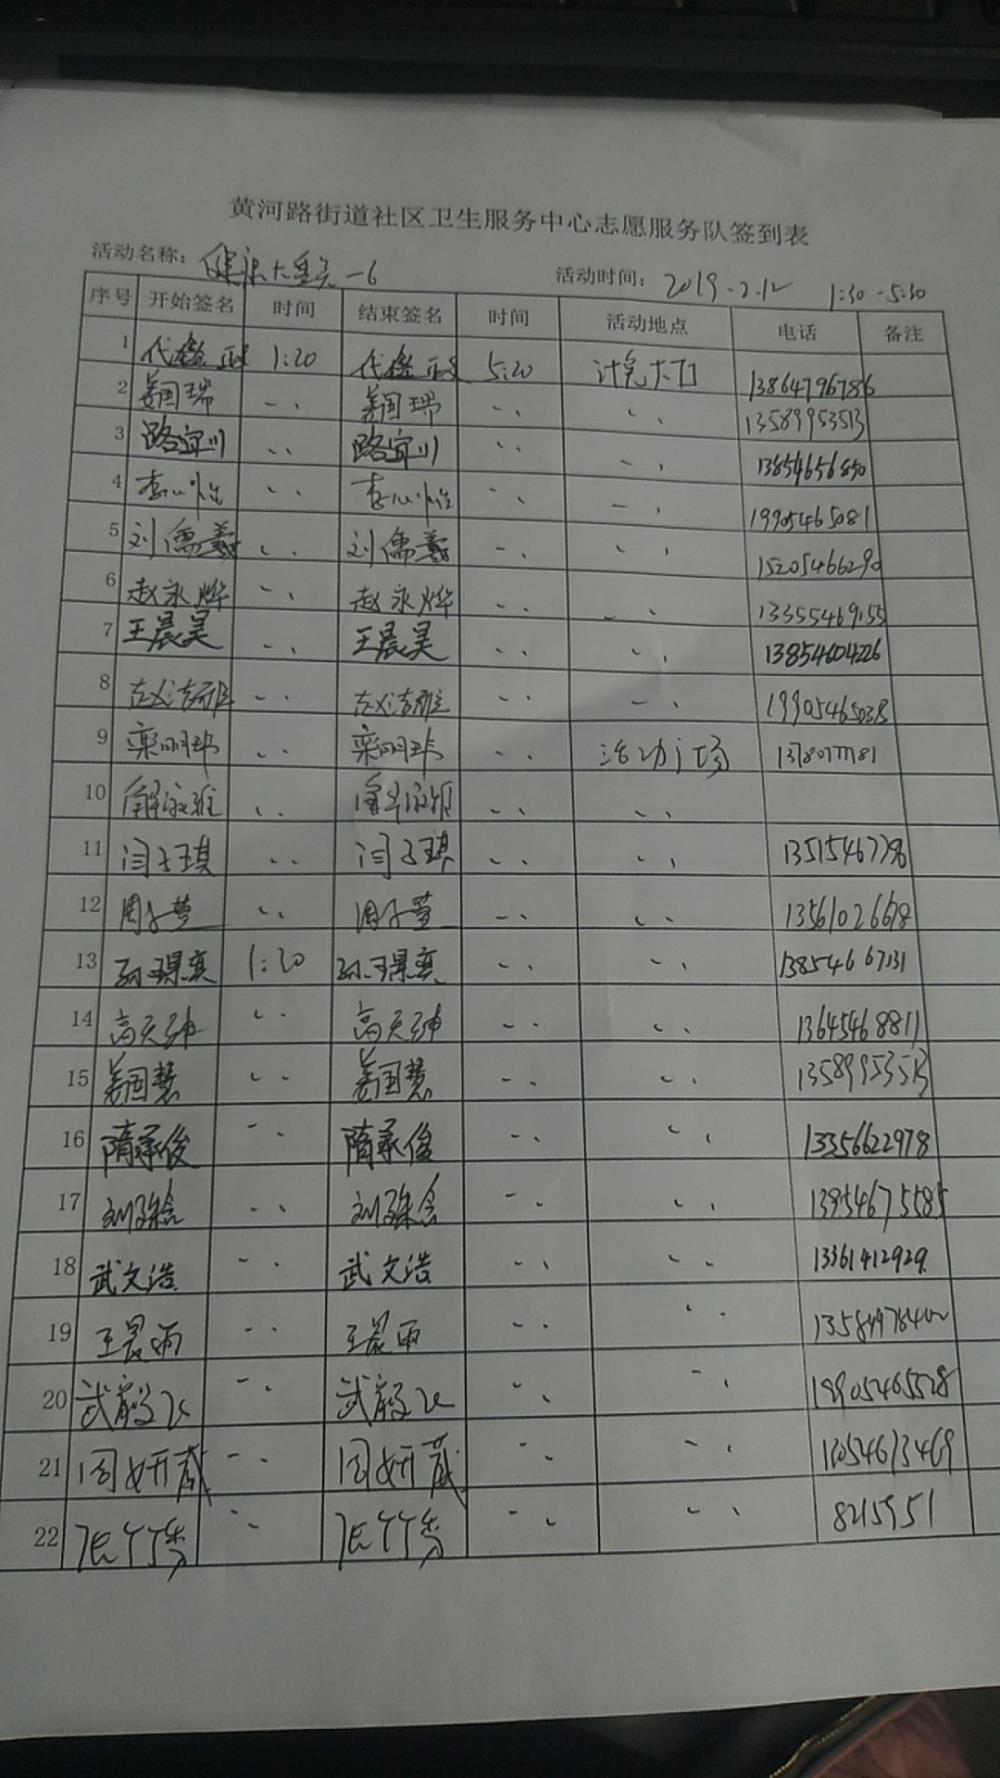 黄河路街道社区卫生服务中心志愿服务队签到表
活动名称： -6 活动时间： 2019.2.12 1:30-5:30
序号 开始签名 时间 结束签名 时间 活动地点 电话 备注
1 代 1:20 代 5:20 13864796786
2 姜国瑞 〃 姜国瑞 〃 〃 13589953513
3 路宜川 〃 路宜川 〃 〃 13854656850
4 李心怡 〃 李心怡 〃 〃 19905465081
5 刘儒羲 〃 刘儒羲 〃 〃 15205466290
6 赵永烨 〃 赵永烨 〃 〃 13355469155
7 王晨昊 〃 王晨昊 〃 〃 13854604226
8 〃 〃 〃 19905465038
9 栾明玮 〃 栾明玮 〃 活动广场
10 〃 〃 〃
11 闫子琪 〃 闫子琪 〃 〃 13515467796
12 周子萱 〃 周子萱 〃 〃 13561026678
13 孙璟奕 1:20 孙璟奕 〃 〃 13854667131
14 高天绅 〃 高天绅 〃 〃 13645468811
15 姜国慧 〃 姜国慧 〃 〃 13589953513
16 隋承俊 〃 隋承俊 〃 〃 13356622978
17 刘 〃 刘 〃 〃 13954675585
18 武文浩 〃 武文浩 〃 〃 13361412929
19 王晨雨 〃 王晨雨 〃 〃
20 武毅飞 〃 武毅飞 〃 〃 19905465528
21 周妍葳 〃 周妍葳 〃 〃
22 张竹秀 〃 张竹秀 〃 〃 8215951